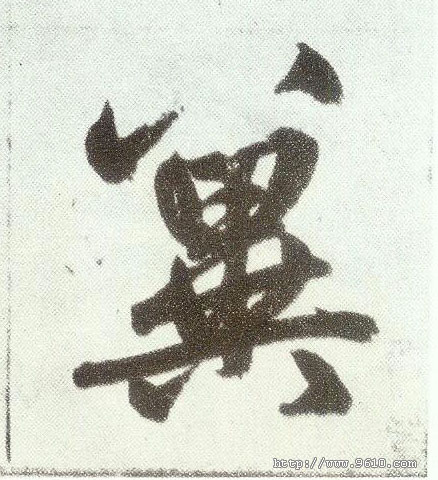 冀
http://www.9610.com